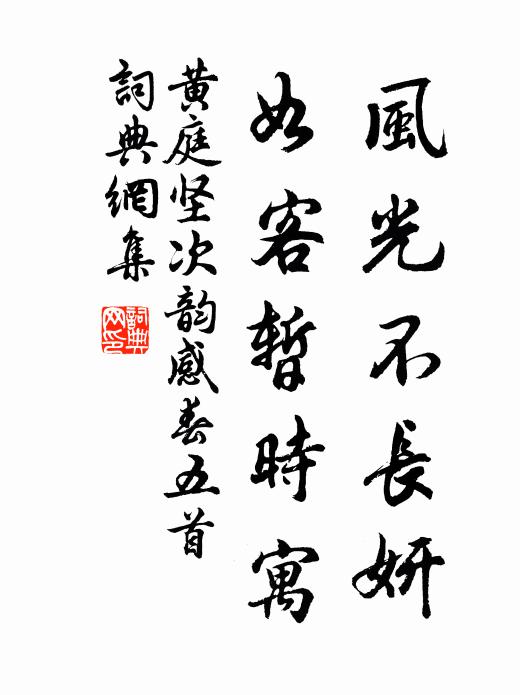 風光不長妍
如客暫時寓
黄庭坚次韵感春五首
詞典網集
詞典網印